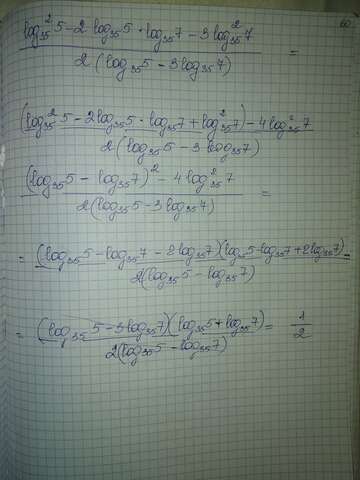 60
log²₃₅5 - 2 log₃₅5 · log₃₅7 - 3 log²₃₅7 / 2 (log₃₅5 - 3 log₃₅7) =
(log²₃₅5 - 2 log₃₅5 · log₃₅7 + log²₃₅7) - 4 log²₃₅7 / 2 (log₃₅5 - 3 log₃₅7)
(log₃₅5 - log₃₅7)² - 4 log²₃₅7 / 2 (log₃₅5 - 3 log₃₅7) =
= (log₃₅5 - log₃₅7 - 2 log₃₅7)(log₃₅5 - log₃₅7 + 2 log₃₅7) / 2 (log₃₅5 - log₃₅7) =
= (log₃₅5 - 3 log₃₅7)(log₃₅5 + log₃₅7) / 2 (log₃₅5 - log₃₅7) = 1/2